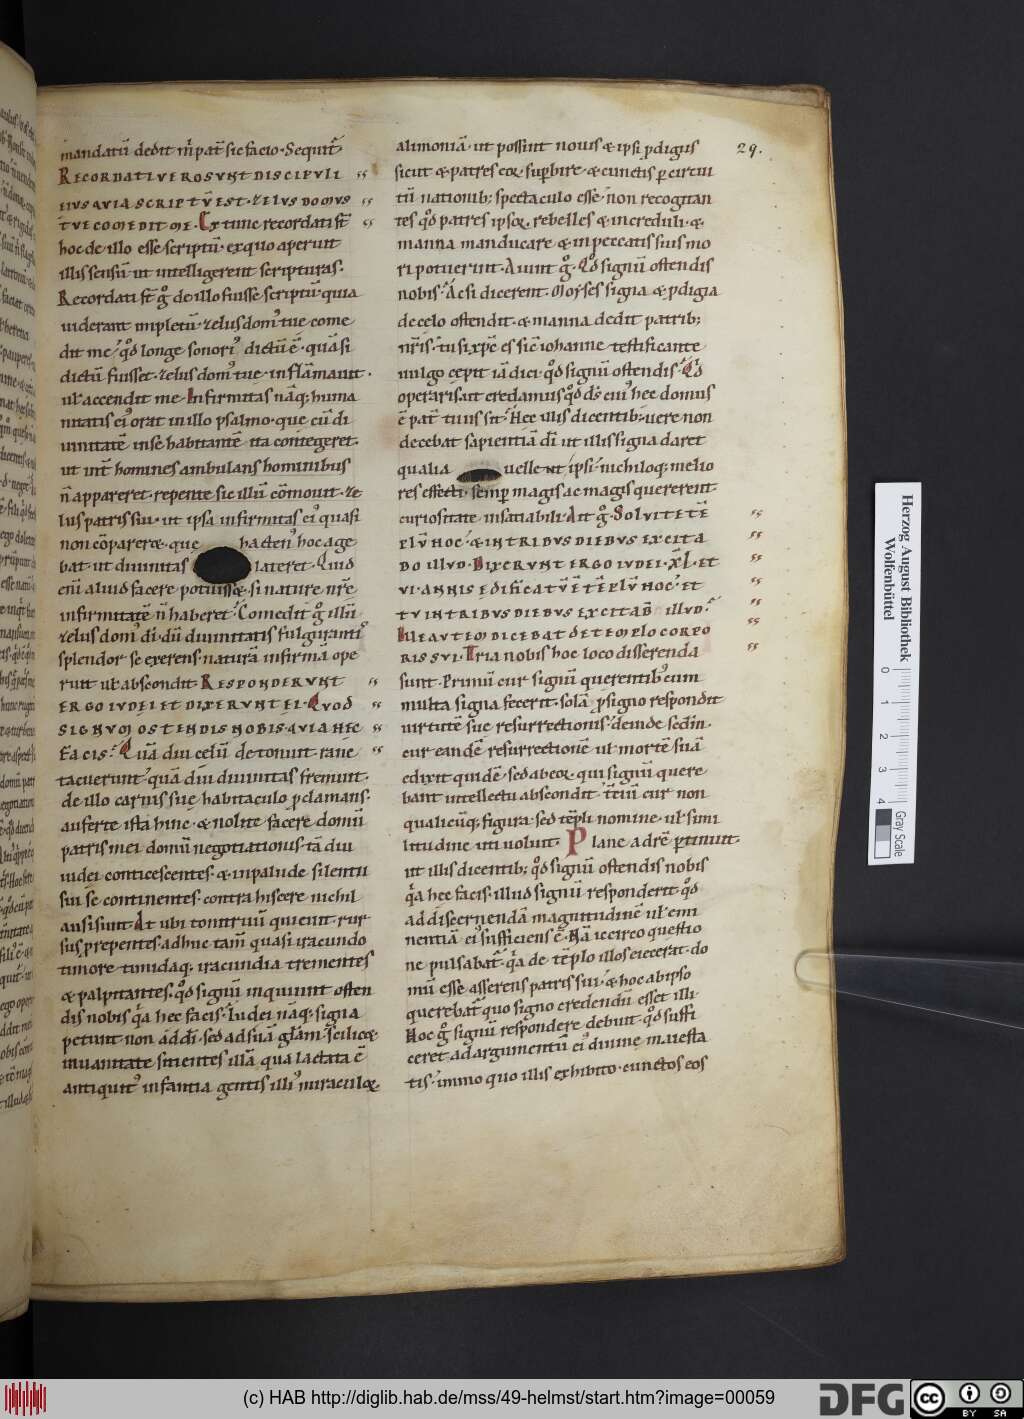 mandatū dedit m̄ pat̄ sic facio. Sequit̄
RECORDATI VERO SUNT DISCIPULI
EIUS QUIA SCRIPTŪ EST. ZELUS DOMUS
TUE COMEDIT ME. Ex tunc recordati st̄
hoc de illo esse scriptū. ex quo aperuit
illis sensū ut intelligerent scripturas.
Recordati st̄ g̊ de illo fuisse scriptū. quia
viderant impletū. zelus domꝰ tue come
dit me. qd̄ longe sonoriꝰ dictū ē. quā si
dictū fuisset. zelus domꝰ tue. inflāmavit.
ul̄ accendit me. Infirmitas nāq; huma
nitatis eiꝰ orat in illo psalmo. que cū di
vinitatē in se habitantē ita contegeret.
ut int̄ homines ambulans hominibus
n̄ appareret. repente sic illū cōmovit. ze
lus patris sui. ut ipsa infirmitas eiꝰ quasi
non cōpareret. que hactenꝰ hoc age
bat ut divinitas lateret. Quid
eni aliud facere potuisset. si nature nr̄e
infirmitatē n̄ haberet. Comedit g̊ illū
zelus domꝰ di. dū divinitatis fulgurantiꝰ
splendor se exerens. naturā infirmā ope
ruit ul̄ abscondit. RESPONDERUNT
ERGO IUDEI ET DIXERUNT EI. QUOD
SIGNUM OSTENDIS NOBIS QUIA HEC
FACIS. Quā diu celū detonuit. rane
tacuerunt. quā diu divinitas fremuit.
de illo carnis sue habitaculo p̄clamans.
auferte ista hinc. & nolite facere domū
patris mei domū negotiationis. tā diu
iudei conticescentes. & in palude silentii
sui se continentes. contra hiscere nichil
ausi sunt. At ubi tonitruū quievit. rur
sus prepentes adhuc tam̄ quasi iracundo
timore timidaq; iracundia trementes
& palpitantes. qd̄ signū inquiunt osten
dis nobis q̄a hec facis. Iudei nāq; signa
petunt non ad d̄i. sed ad suā gl̄am. scilicet
in vanitate sitientes illā qua lactata ē
antiquitꝰ infantia gentis illiꝰ miraculoꝝ
29.
alimoniā. ut possint novis & ipsi p̄digiis
sicut & patres eoꝝ supbire. & cunctis p circui
tū nationib; spectaculo esse. non recogitan
tes qd̄ patres ipsoꝝ. rebelles & increduli. &
manna manducare & in peccatis suis mo
ri potuerint. Aiunt g̊. Qd̄ signū ostendis
nobis. Ac si dicerent. Moyses signa & p̄digia
de celo ostendit. & manna dedit patrib;
nr̄is. tu si xp̄c es sic iohanne testificante
vulgo cepit iā dici. qd̄ signū ostendis. Qd̄
operaris ut credamus qd̄ d̄s cuiꝰ hec domus
ē pat̄ tuus sit. Hec illis dicentib; vere non
decebat sapientiā d̄i ut illis signa daret
qualia vellent ipsi. nichiloq; melio
res effecti. semp magis ac magis quererent
curiositate insatiabili. Ait g̊. SOLVITE TĒ
PLŪ HOC. & IN TRIBUS DIEBUS EXCITA
BO ILLUD. DIXERUNT ERGO IUDEI. XL. ET
VI. ANNIS EDIFICATŪ Ē TĒPLŪ HOC. ET
TU IN TRIBUS DIEBUS EXCITAB̄ ILLUD.
ILLE AUTEM DICEBAT DE TEMPLO CORPO
RIS SUI. Tria nobis hoc loco disserenda
sunt. Primū cur signū querentibꝰ cum
multa signa fecerit. solā p̄ signo respondit
virtutē sue resurrectionis. deinde sed̄m.
cur eandē resurrectionē ul̄ mortē suā
edixit quidē. sed ab eoꝝ. qui signū quere
bant intellectu abscondit. t̄ciū cur non
qualicūq; figura. sed tēpli nomine. ul̄ simi
litudine uti voluit. Plane ad rē ptinuit.
ut illis dicentib; qd̄ signū ostendis nobis
q̄a hec facis. illud signū responderit qd̄
ad discernendā magnitudinē ul̄ emi
nentiā eiꝰ sufficiens ē. Nā iccirco questio
ne pulsabat̄. q̄a de tēplo illos eiecerat. do
mū esse asserens patris sui. & hoc ab ipso
querebat̄ quo signo credendū esset illi.
Hoc g̊ signū respondere debuit. qd̄ suffi
ceret ad argumentū eiꝰ divine maiesta
tis. immo quo illis exhibito. cunctos eos
Herzog August Bibliothek
Wolfenbüttel
0 1 2 3 4
Gray Scale
(c) HAB http://diglib.hab.de/mss/49-helmst/start.htm?image=00059
DFG
cc BY SA